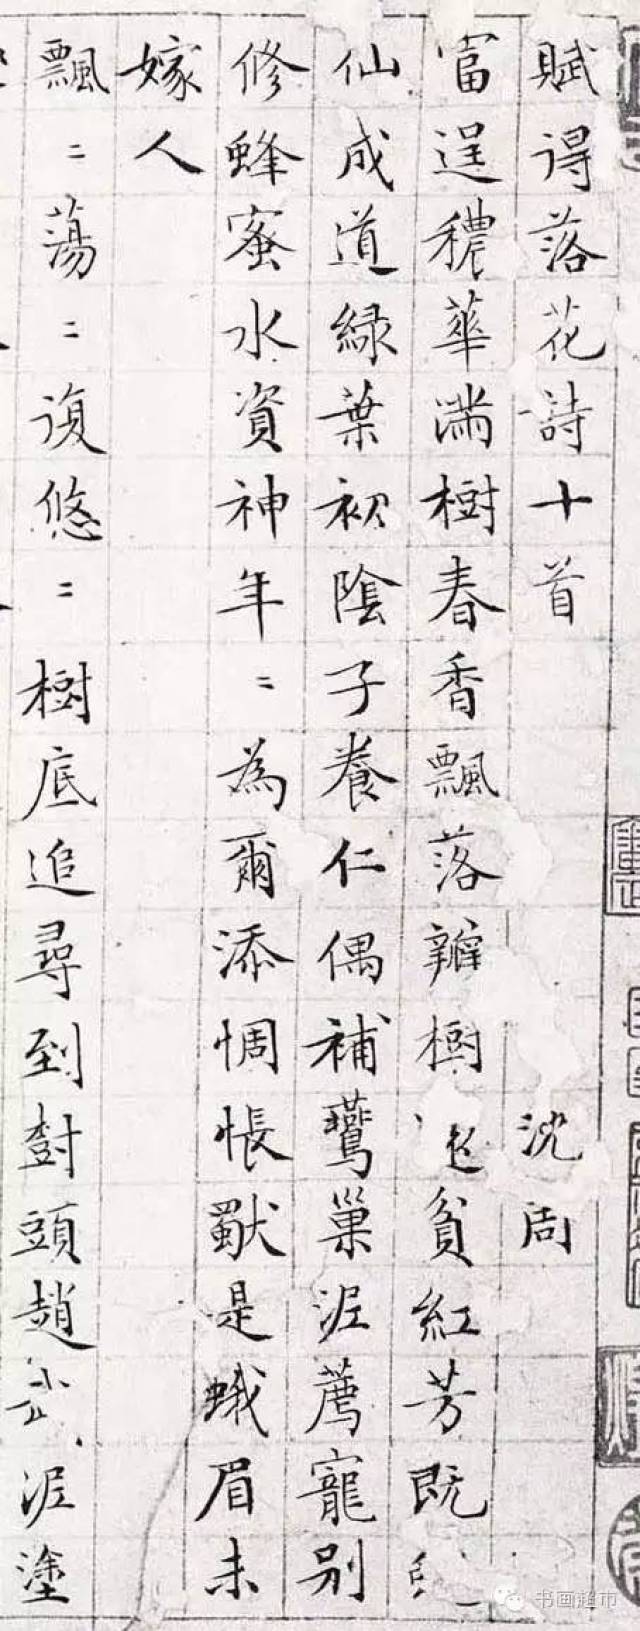 賦得落花詩十首 沈周
富逞穠華滿樹春香飄落瓣樹還貧紅芳既
仙成道綠葉初陰子養仁偶補鶯巢泥薦寵別
修蜂蜜水資神年〻為爾添惆悵獸是蛾眉未
嫁人
飄〻蕩〻復悠〻樹底追尋到樹頭趙武泥塗
书画超市